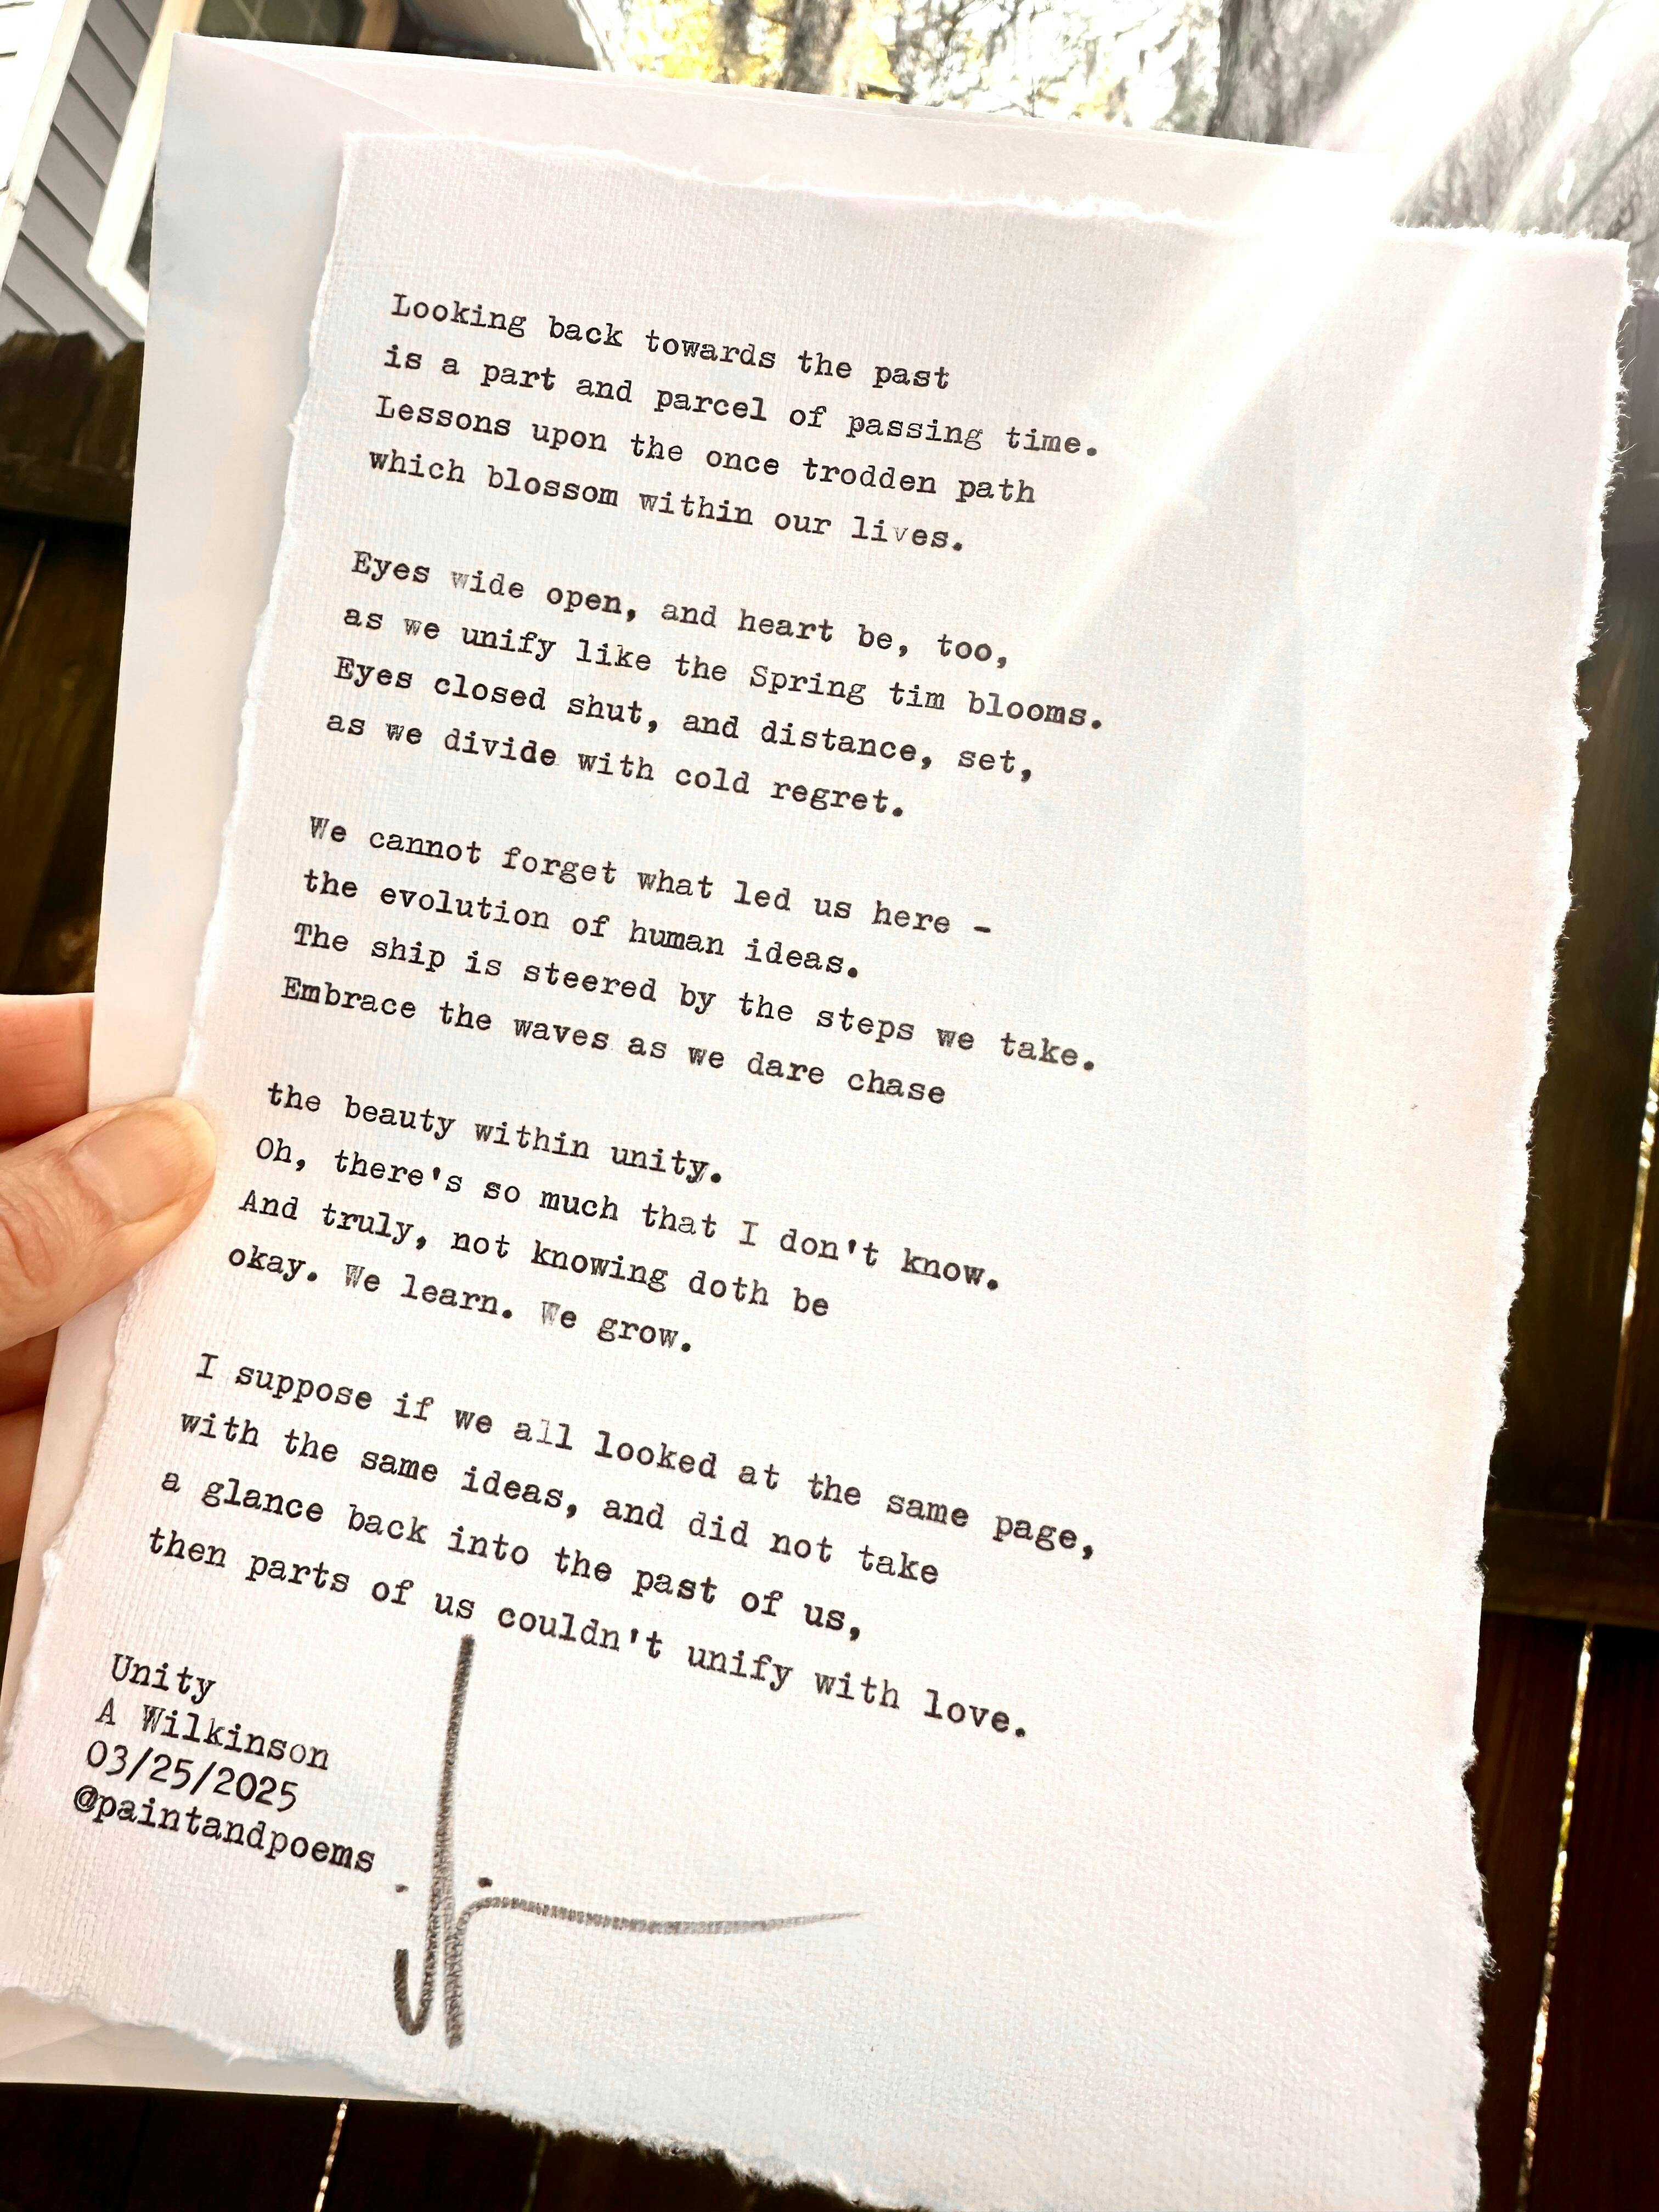 Looking back towards the past
is a part and parcel of passing time.
Lessons upon the once trodden path
which blossom within our lives.
Eyes wide open, and heart be, too,
as we unify like the Spring tim blooms.
Eyes closed shut, and distance, set,
as we divide with cold regret.
We cannot forget what led us here -
the evolution of human ideas.
The ship is steered by the steps we take.
Embrace the waves as we dare chase
the beauty within unity.
Oh, there's so much that I don't know.
And truly, not knowing doth be
okay. We learn. We grow.
I suppose if we all looked at the same page,
with the same ideas, and did not take
a glance back into the past of us,
then parts of us couldn't unify with love.
Unity
A Wilkinson
03/25/2025
@paintandpoems